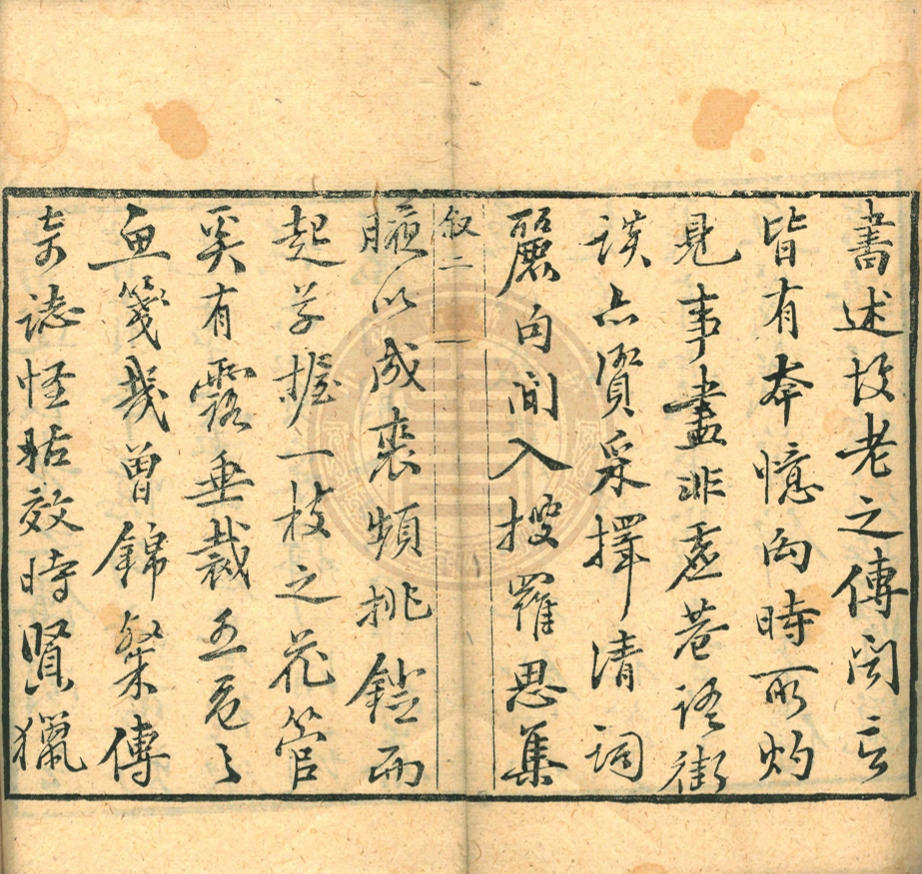 書述故老之傳聞言
皆有本憶兩時所灼
見事盡非虛巷語街
談亦資采擇清詞
麗句間入搜羅思集
叙二
腋以成裘頻挑鐙而
起草握一枝之花管
奚有露垂裁五色之
魚箋幾曾錦粲傳
奇誌怪敢效時賢獵